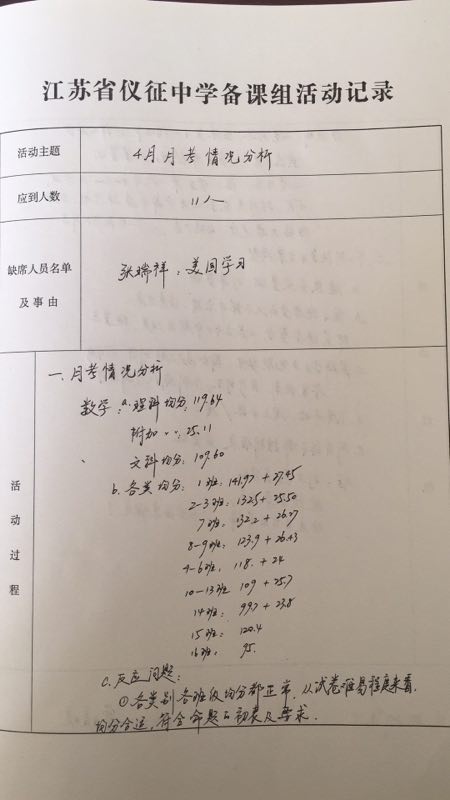 江苏省仪征中学备课组活动记录
活动主题
4月月考情况分析
应到人数
11人
缺席人员名单
及事由
张瑞祥：美国学习
活动过程
一.月考情况分析
数学：a.理科均分：119.64
附加〃〃：25.11
文科均分：109.60
b.各类均分：1班：141.97+27.45
2-3班：132.5+25.50
7班：132.2+26.27
8-9班：123.9+26.43
4-6班：118.+24
10-13班 109+25.7
14班：99.7+23.8
15班：120.4
16班：95.
c.反应问题：
①各类别各班级均分都正常，从试卷难易程度来看，
均分合适，符合命题的初衷及要求.